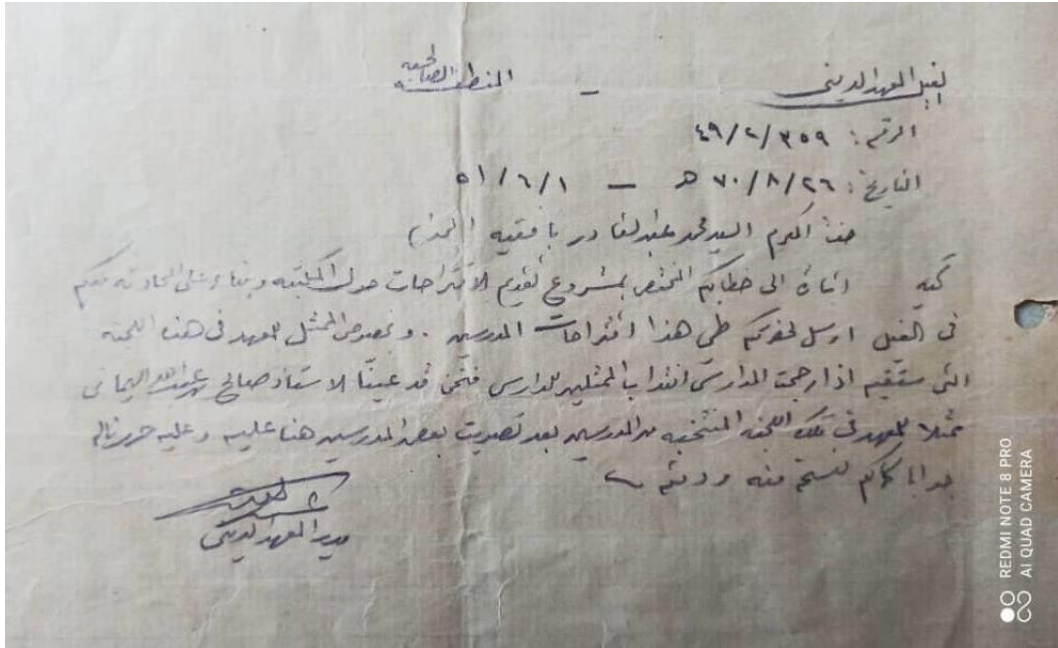 الغيل المعهد الديني – المنطقة
الرقم: ٤٩/٢/٣٥٩
التاريخ: ٧٠/٨/٢٦ هـ — ٥١/٦/١
المكرم السيد محمد عبدالقادر بافقيه
تحيه الى خطابكم المختص بمشروع تقديم الاقتراحات حول المكتبه وبناء على المحادثه معكم
في الغيل ارسل لحضرتكم طي هذا اقتراحات المدرسين . وبخصوص الممثل للمعهد في هذه اللجنه
التي ستقيم اذا المدارس انتداب الممثلين للمدارس فنحن قد عينّا الاستاذ صالح عبدالله اليماني
ممثلا للمعهد في تلك اللجنه المنتخبه من المدرسين بعد تصويت بعض المدرسين هنا عليه وعليه حررنا
ودمتم
مدير المعهد الديني
REDMI NOTE 8 PRO
AI QUAD CAMERA